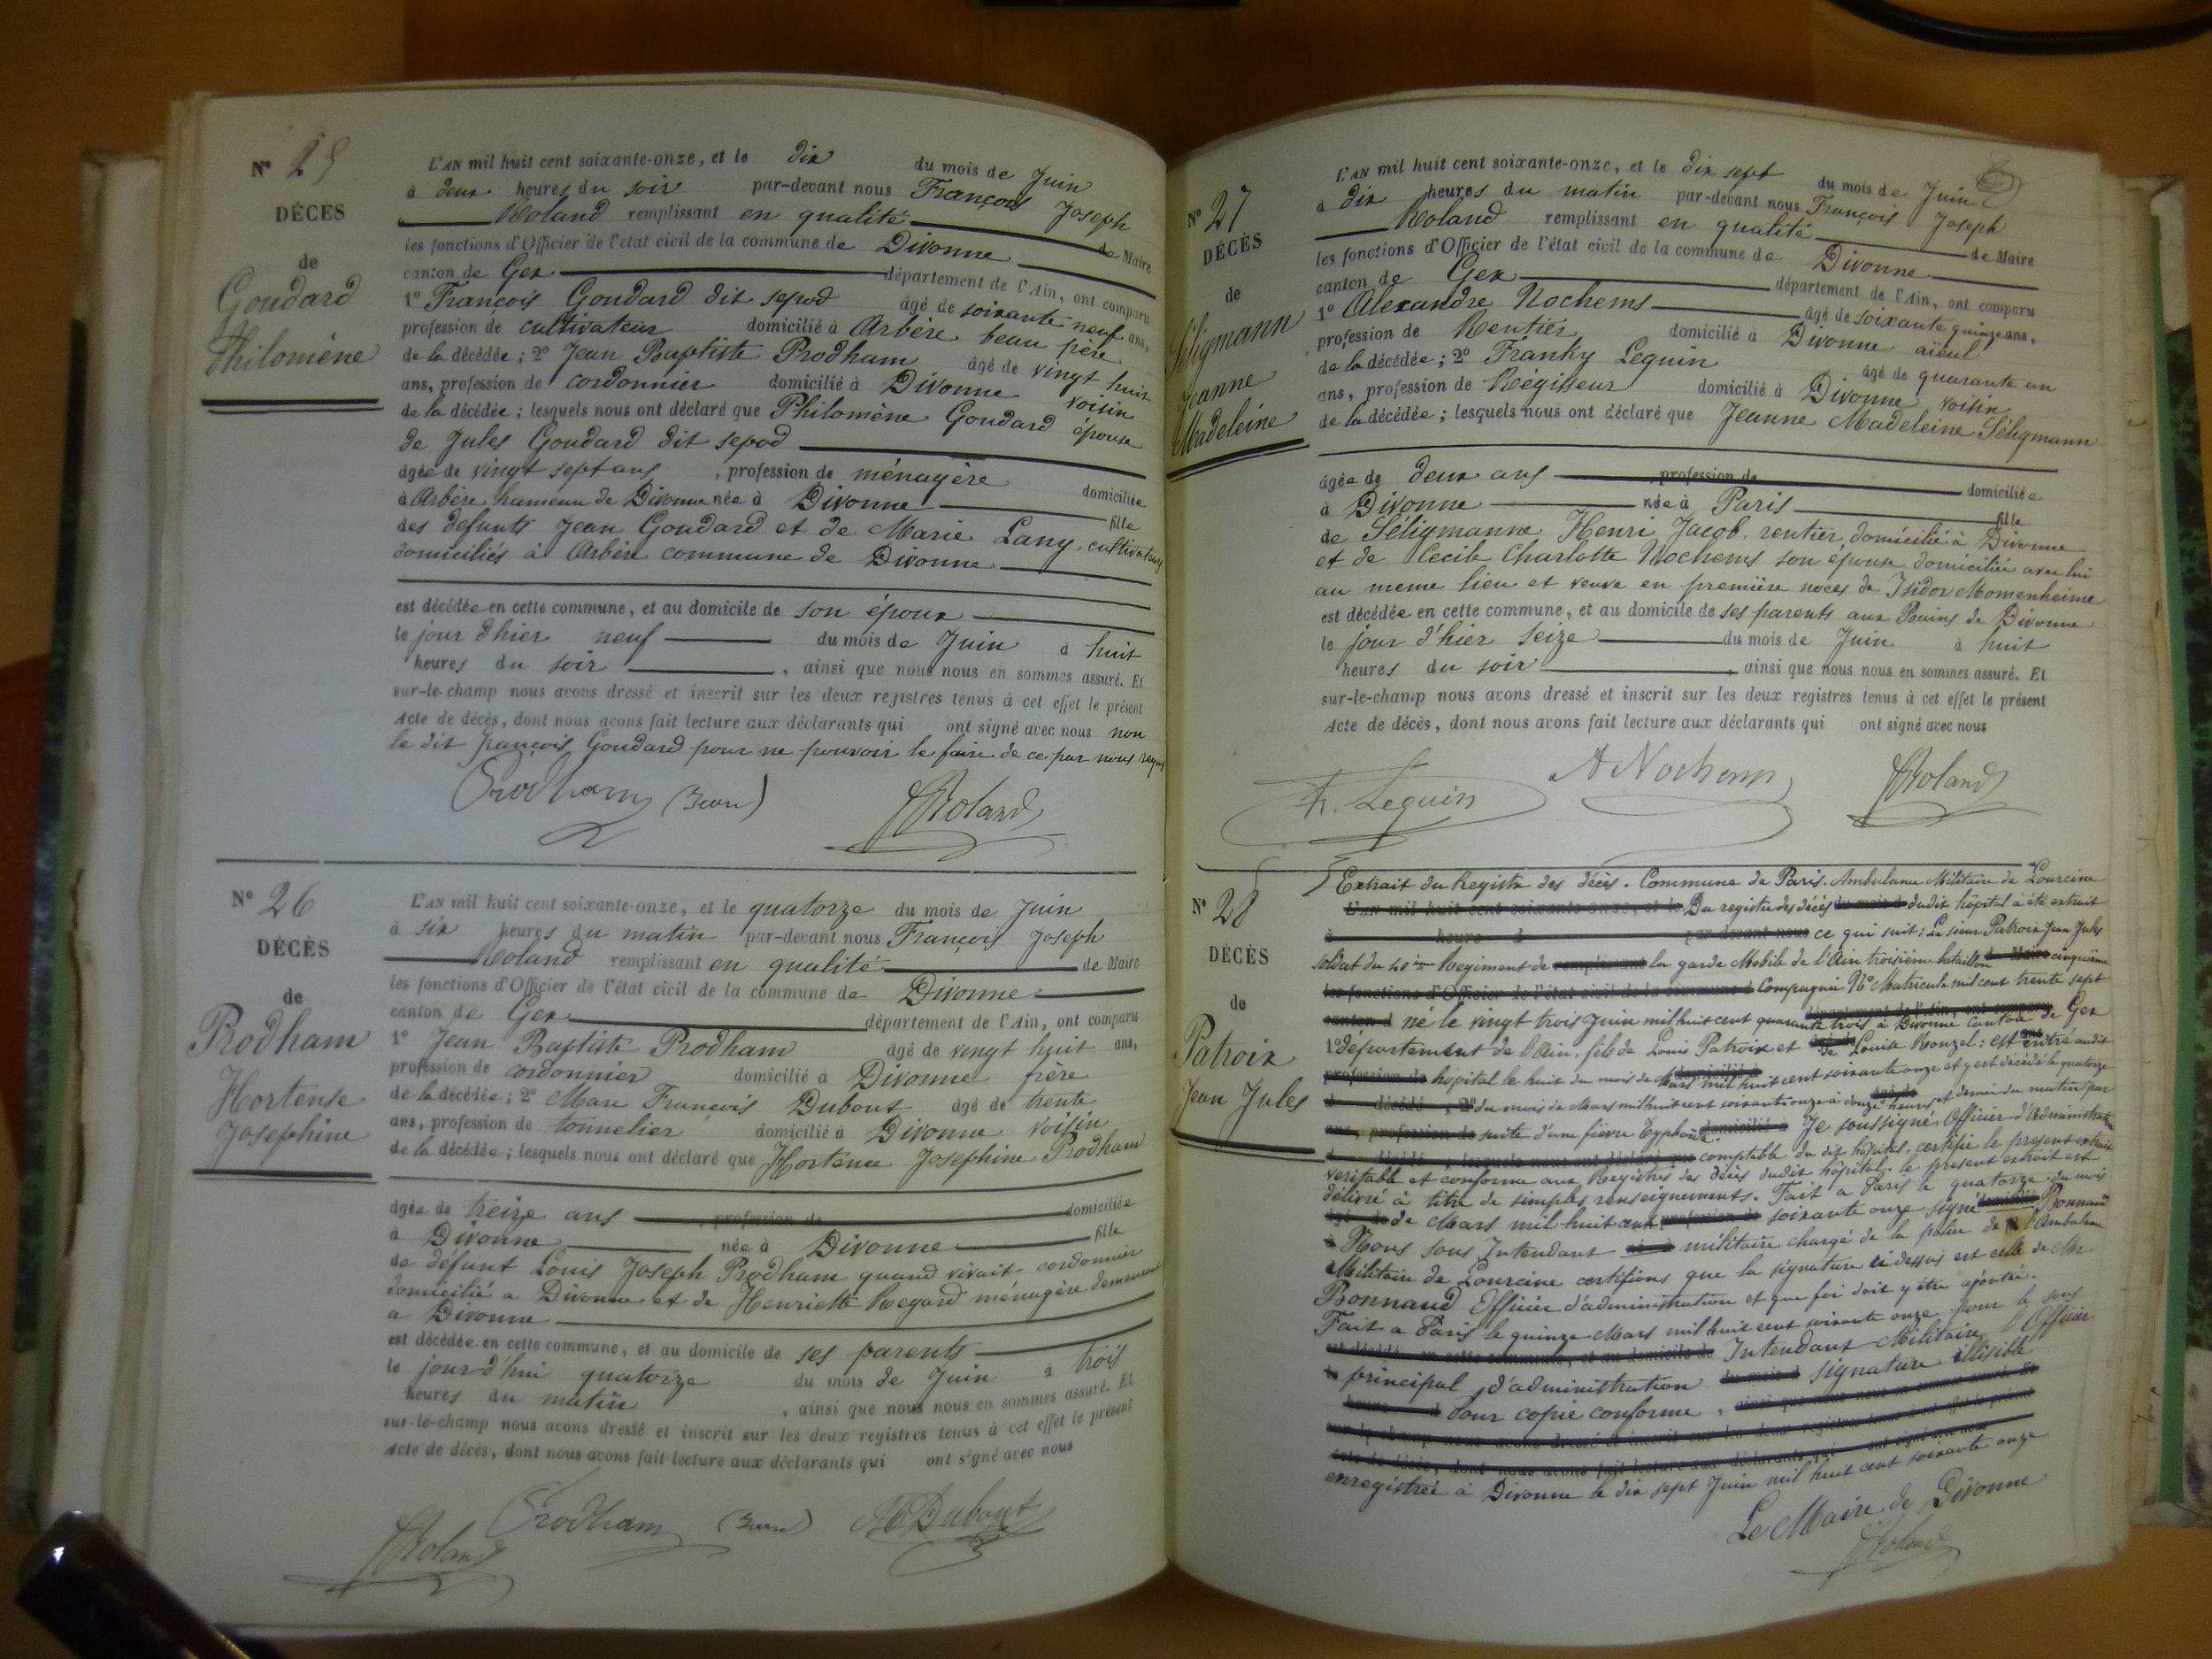 N° 25
DÉCES
de
Goudard
Philomène
L'AN mil huit cent soixante-onze, et le dix du mois de Juin
à deux heures du soir par-devant nous François Joseph
Roland remplissant en qualité de Maire
les fonctions d'Officier de l'état civil de la commune de Divonne
canton de Gex département de l'Ain, ont comparu
1° François Goudard dit sepod âgé de soixante neuf ans,
profession de cultivateur domicilié à Arbère beau père
de la décédée ; 2° Jean Baptiste Prodham âgé de vingt huit
ans, profession de cordonnier domicilié à Divonne voisin
de la décédée ; lesquels nous ont déclaré que Philomène Goudard épouse
de Jules Goudard dit sepod
âgée de vingt sept ans , profession de ménagère domiciliée
à Arbère hameau de Divonne née à Divonne fille
des defunts Jean Goudard et de Marie Lany, cultivateurs
domiciliés à Arbère commune de Divonne
est décédée en cette commune, et au domicile de son époux
le jour d'hier neuf du mois de Juin à huit
heures du soir , ainsi que nous nous en sommes assuré. Et
sur-le-champ nous avons dressé et inscrit sur les deux registres tenus à cet effet le présent
Acte de décès, dont nous avons fait lecture aux déclarants qui ont signé avec nous non
le dit françois Goudard pour ne pouvoir le faire de ce par nous requis
Prodham (Jean) Roland
N° 26
DÉCÈS
de
Prodham
Hortense
Josephine
L'AN mil huit cent soixante-onze, et le quatorze du mois de Juin
à six heures du matin par-devant nous François Joseph
Roland remplissant en qualité de Maire
les fonctions d'Officier de l'état civil de la commune de Divonne
canton de Gex département de l'Ain, ont comparu
1° Jean Baptiste Prodham âgé de vingt huit ans,
profession de cordonnier domicilié à Divonne frère
de la décédée ; 2° Marc François Dubout âgé de trente
ans, profession de tonnelier domicilié à Divonne voisin
de la décédée ; lesquels nous ont déclaré que Hortence Josephine Prodham
âgée de treize ans , profession de domiciliée
à Divonne née à Divonne fille
de défunt Louis Joseph Prodham quand vivait cordonnier
domicilié a Divonne et de Henriette Regard ménagère demeurant
a Divonne
est décédée en cette commune, et au domicile de ses parents
le jour d'hui quatorze du mois de Juin à trois
heures du matin , ainsi que nous nous en sommes assuré. Et
sur-le-champ nous avons dressé et inscrit sur les deux registres tenus à cet effet le présent
Acte de décès, dont nous avons fait lecture aux déclarants qui ont signé avec nous
Roland Prodham (Jean) Dubout
N° 27
DÉCÈS
de
Séligmann
Jeanne
Madeleine
L'AN mil huit cent soixante-onze, et le dix sept du mois de Juin
à dix heures du matin par-devant nous François Joseph
Roland remplissant en qualité de Maire
les fonctions d'Officier de l'état civil de la commune de Divonne
canton de Gex département de l'Ain, ont comparu
1° Alexandre Nochems âgé de soixante quinze ans,
profession de Rentier domicilié à Divonne aïeul
de la décédée ; 2° Franky Leguin âgé de quarante un
ans, profession de Régisseur domicilié à Divonne voisin
de la décédée ; lesquels nous ont déclaré que Jeanne Madeleine Séligmann
âgée de deux ans , profession de domiciliée
à Divonne née à Paris fille
de Séligmann Henri Jacob, rentier, domicilié à Divonne
et de Cecile Charlotte Nochems son épouse domiciliée avec lui
au meme lieu et veuve en première noces de Isidor Momenheime
est décédée en cette commune, et au domicile de ses parents aux Bains de Divonne
le jour d'hier seize du mois de Juin à huit
heures du soir , ainsi que nous nous en sommes assuré. Et
sur-le-champ nous avons dressé et inscrit sur les deux registres tenus à cet effet le présent
Acte de décès, dont nous avons fait lecture aux déclarants qui ont signé avec nous
F. Leguin A Nochems Roland
N° 28
DÉCÈS
de
Patroix
Jean Jules
Extrait du Registre des décès. Commune de Paris. Ambulance Militaire de Lourcine
L'AN mil huit cent soixante-onze, et le Du registre des décès du mois d dudit hôpital a été extrait
à heure d par-devant nous ce qui suit : Le sieur Patroix Jean Jules
soldat du 40ème Regiment de remplissant la garde Mobile de l'Ain troisième bataillon de Maire cinquième
les fonctions d'Officier de l'état civil de la commune d Compagnie N° Matricule mil cent trente sept
canton d né le vingt trois Juin mil huit cent quarante trois à Divonne Canton de Gex
1° département de l'Ain, fils de Louis Patroix et de Louise Ronzel : est entré audit
profession de hopital le huit du mois de Mars mil huit cent soixante onze et y est décédé le quatorze
d décédé ; 2° du mois de Mars mil huit cent soixante onze à douze heures et demie du matin par
ans, profession de suite d'une fièvre typhoïde. domicilié à Je soussigné, Officier d'Administration
d décédé ; lesquels nous ont déclaré que comptable du dit hôpital, certifie le present extrait
veritable et conforme aux Registres des décès dudit hôpital. le present extrait est
délivré à titre de simples renseignements. Fait a Paris le quatorze du mois
âgé de de Mars mil huit cent profession de soixante onze signé domicilié Bonnaud
à Nous sous Intendant né à militaire chargé de la police de l'Ambulance
Militaire de Lourcine certifions que la signature ci dessus est celle de Mr
Bonnaud Officier d'administration et que foi doit y être ajoutée.
Fait a Paris le quinze Mars mil huit cent soixante onze pour le sous
est décédé en cette commune, et au domicile de Intendant Militaire, l'Officier
le principal d'administration du mois d signature illisible
heures d Pour copie conforme , ainsi que nous nous en sommes assuré. Et
sur-le-champ nous avons dressé et inscrit sur les deux registres tenus à cet effet le présent
acte de décès, dont nous avons fait lecture aux déclarants qui ont signé avec nous
enregistrée à Divonne le dix sept Juin mil huit cent soixante onze
Le Maire de Divonne
Roland